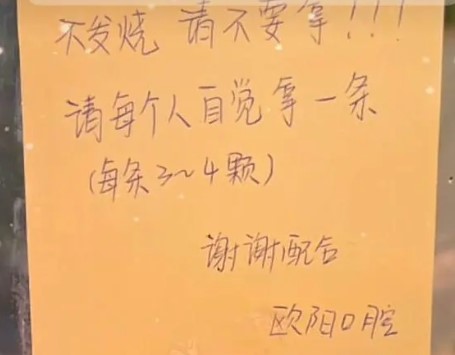 不发烧 请不要拿!!!
请每个人自觉拿一条
(每条3~4颗)
谢谢配合
欧阳口腔